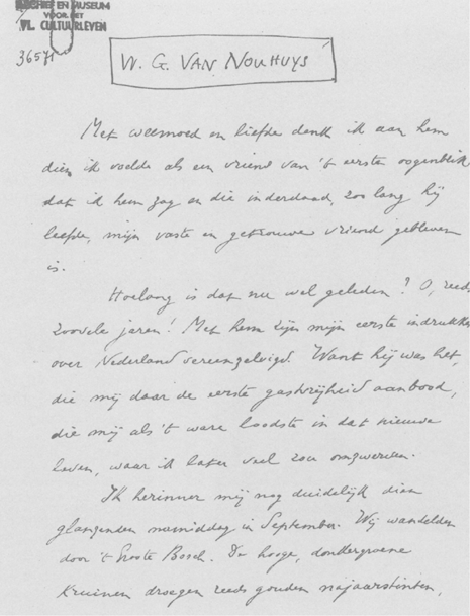 ARCHIEF EN MUSEUM
VOOR HET
VL. CULTUURLEVEN
36571
W. G. VAN NOUHUYS
Met weemoed en liefde denk ik aan hem
dien ik voelde als een vriend van 't eerste oogenblik
dat ik hem zag en die inderdaad, zoo lang hij
leefde, mijn vaste en getrouwe vriend gebleven
is.
Hoelang is dat nu wel geleden? O, reeds
zoovele jaren! Met hem zijn mijn eerste indrukken
over Nederland vereenzelvigd. Want hij was het,
die mij daar de eerste gastvrijheid aanbood,
die mij als 't ware loodste in dat nieuwe
leven, waar ik later veel zou omzwerven.
Ik herinner mij nog duidelijk dien
glanzenden namiddag in September. Wij wandelden
door 't Groote Bosch. De hooge, donkergroene
kruinen droegen reeds gouden najaarstinten,